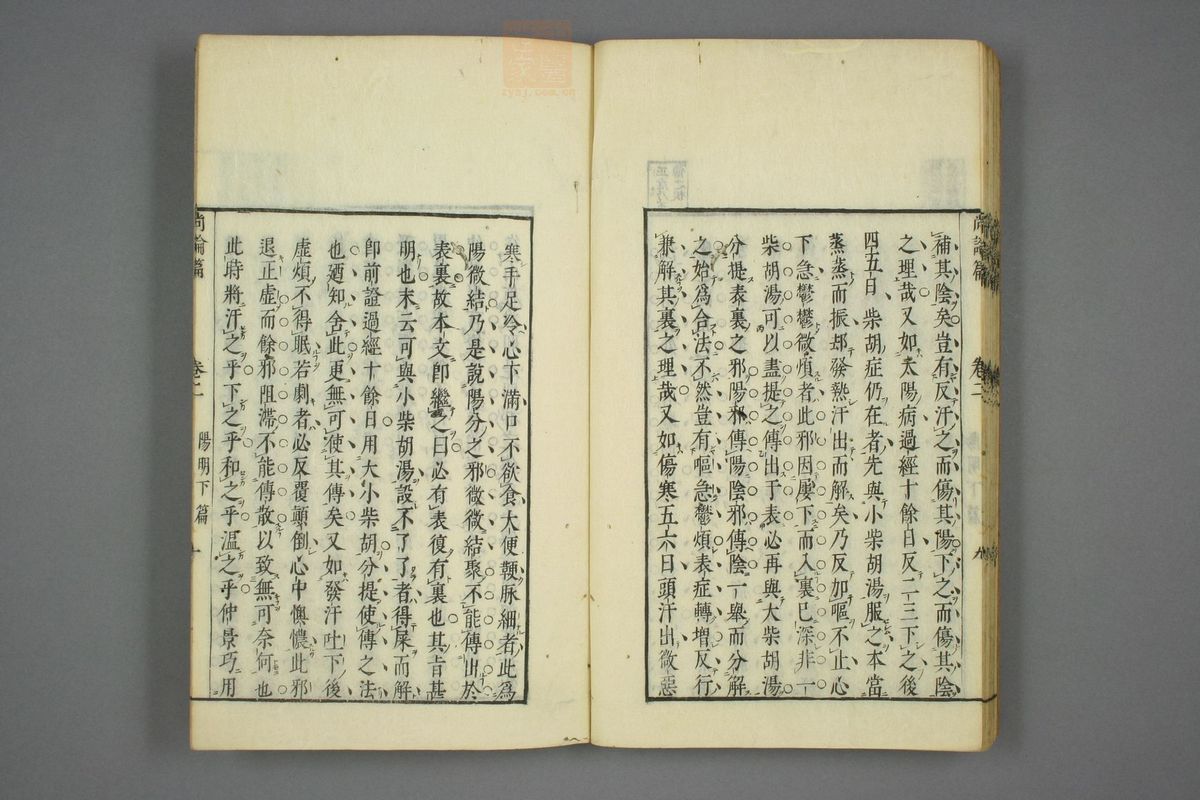 補其陰矣豈有反汗之而傷其陽下之而傷其陰
之理哉又如太陽病過經十餘日反二三下之後
四五日柴胡症仍在者先與小柴胡湯服之本當
蒸蒸而振却發熱汗出而解矣乃反加嘔不止心
下急鬱鬱微煩者此邪因屢下而入裏已深非一
柴胡湯可以盡提之傳出于表必再與大柴胡湯
分提表裏之邪陽邪傳陽陰邪傳陰一舉而分解
之始爲合法不然豈有嘔急鬱煩表症轉增反行
兼解其裏之理哉又如傷寒五六日頭汗出微惡
尚論篇
卷二
九
寒手足冷心下滿口不欲食大便鞕脉細者此爲
陽微結乃是說陽分之邪微微結聚不能傳出於
表裏故本文即繼之曰必有表復有裏也其旨甚
明也末云可與小柴胡湯設不了了者得屎而解
即前證過經十餘日用大小柴胡分提使傳之法
也廼知舍此更無可使其傳矣又如發汗吐下後
虛煩不得眠若劇者必反覆顛倒心中懊憹此邪
退正虛而餘邪阻滯不能傳散以致無可奈何也
此時將汗之乎下之乎和之乎溫之乎仲景巧用
尚論篇
卷二
陽明下篇
zysj.com.cn